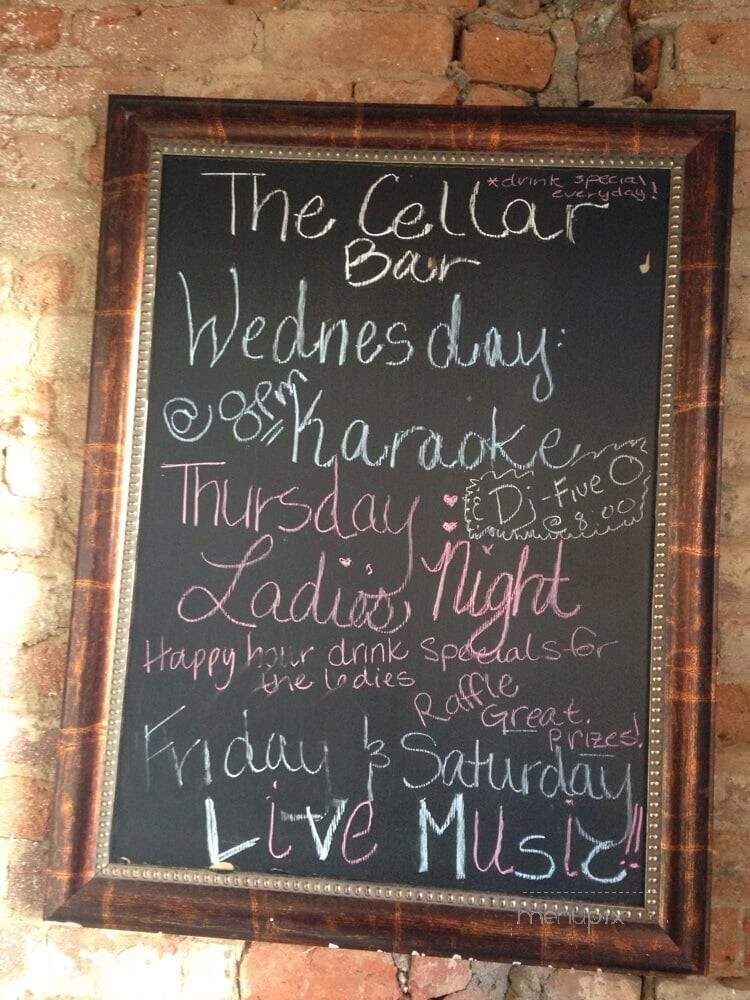 *drink special
everyday!
The Cellar
Bar
Wednesday:
@ 8pm
Karaoke
Thursday:
Dj-Five O
@ 8:00
Ladies Night
Happy hour drink specials for
the ladies
Raffle
Great
prizes!
Friday & Saturday
Live Music!!
menupix